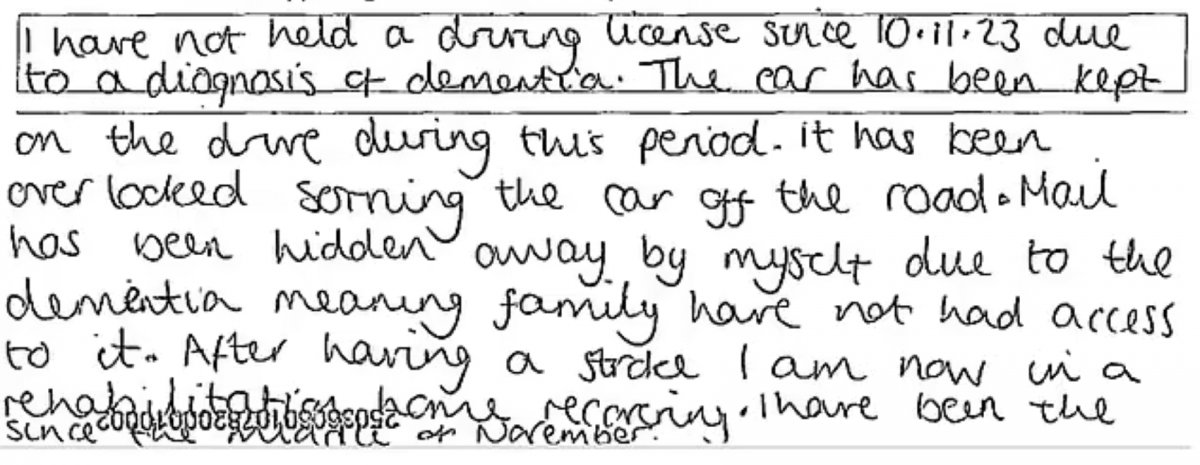 I have not held a driving license since 10.11.23 due
to a diagnosis of dementia. The car has been kept
on the drive during this period. it has been
over locked sorning the car off the road. Mail
has been hidden away by myself due to the
dementia meaning family have not had access
to it. After having a stroke I am now in a
rehabilitation home recovering. I have been the
since the middle of November.